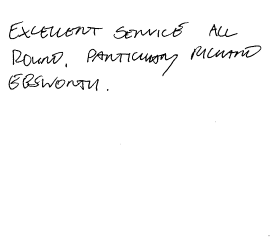 EXCELLENT SERVICE ALL
ROUND. PARTICULARLY RICHARD
EBSWORTH.